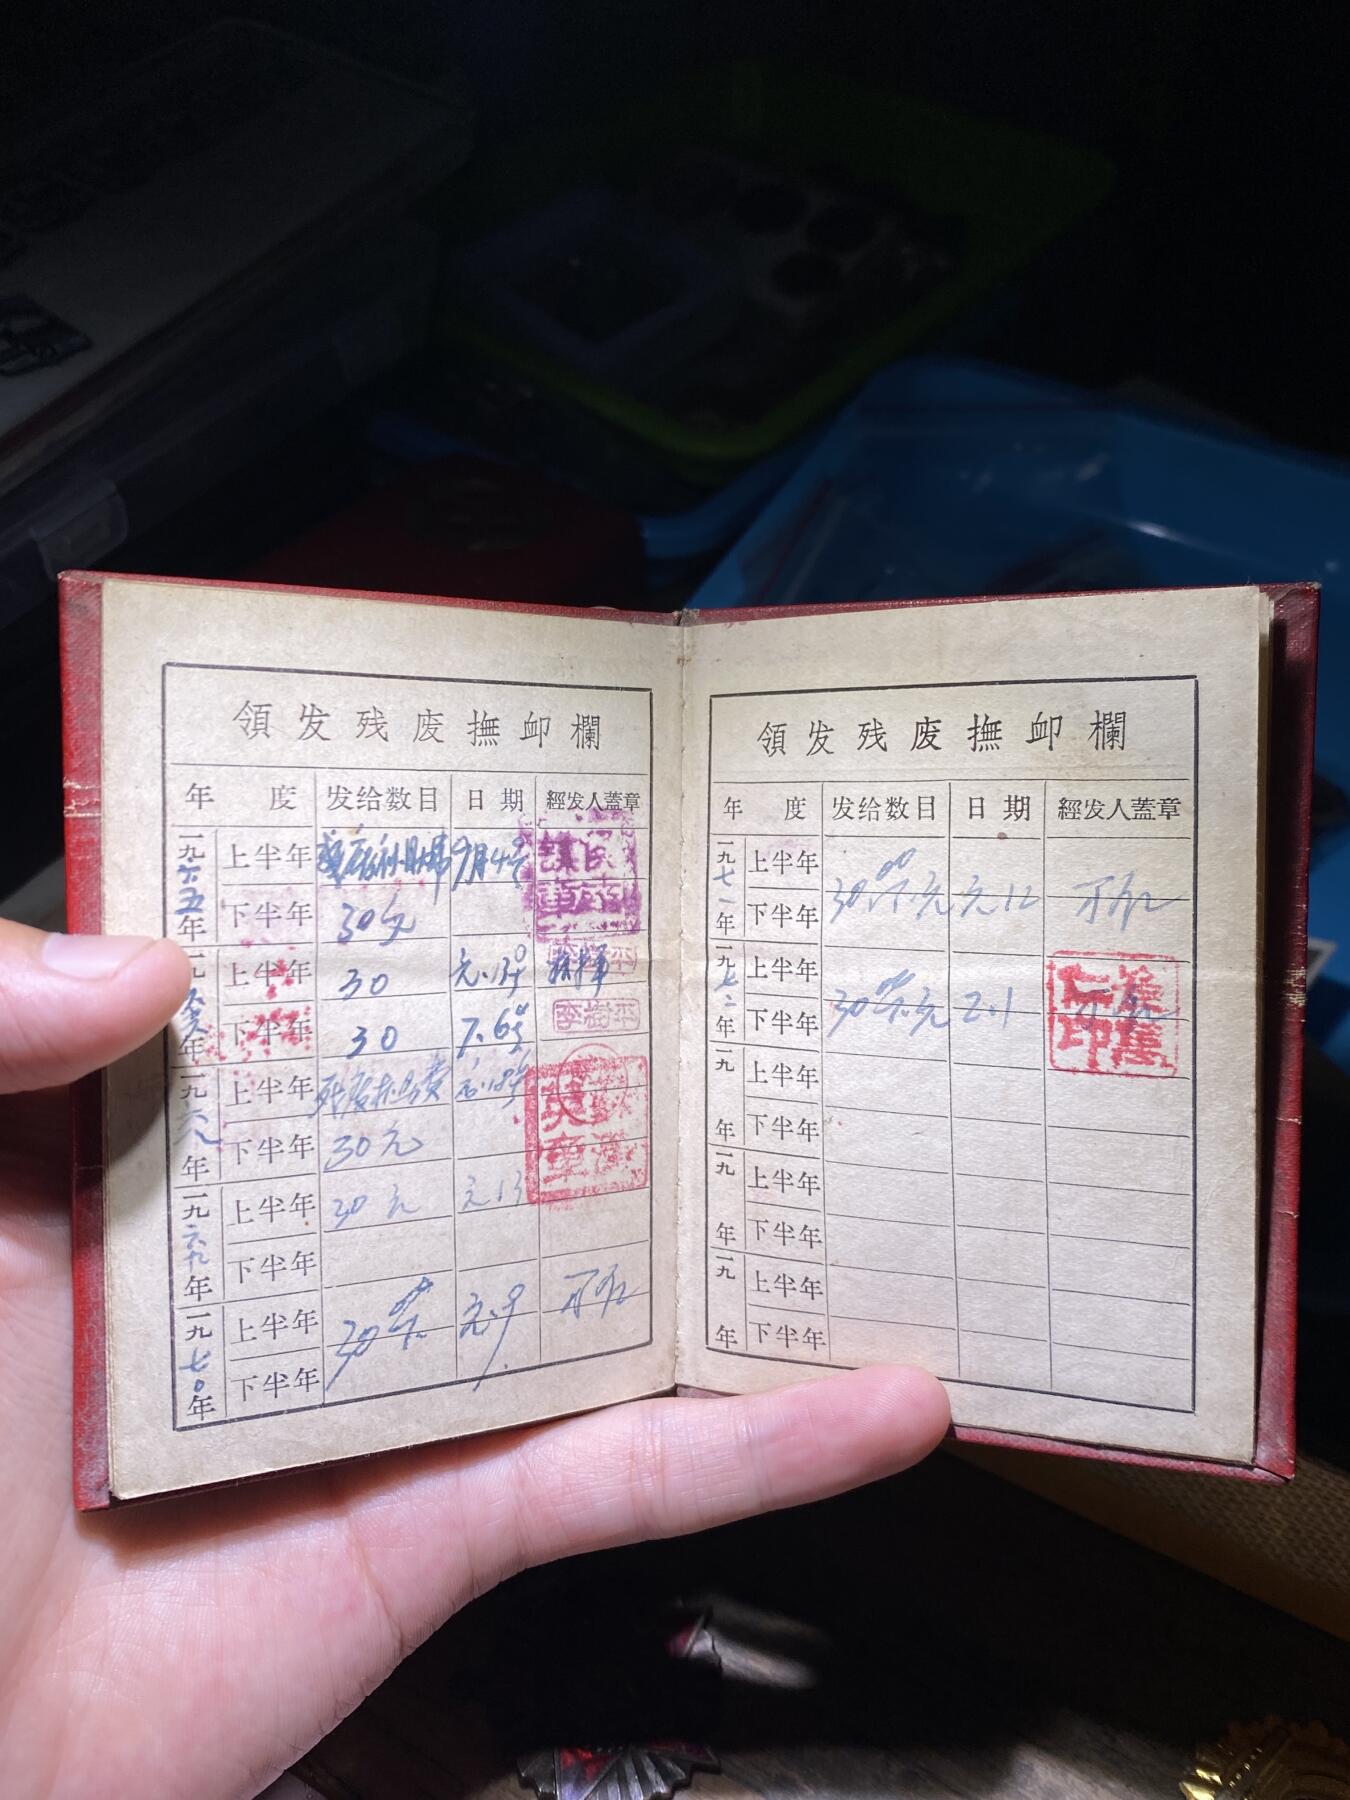 領发残废撫卹欄
年 度 发给数目 日期 經发人蓋章
一九六五年 上半年 9月4号
下半年 30元
一九六六年 上半年 30 元.13号
下半年 30 7.6号
李樹平
一九六八年 上半年
下半年 30元
一九六九年 上半年 30元 元13
下半年
一九七〇年 上半年 30 元.9
下半年
領发残废撫卹欄
年 度 发给数目 日期 經发人蓋章
一九七一年 上半年
下半年 30 元 元.12
一九七二年 上半年
下半年 30 元 2.1
一九 年 上半年
下半年
一九 年 上半年
下半年
一九 年 上半年
下半年